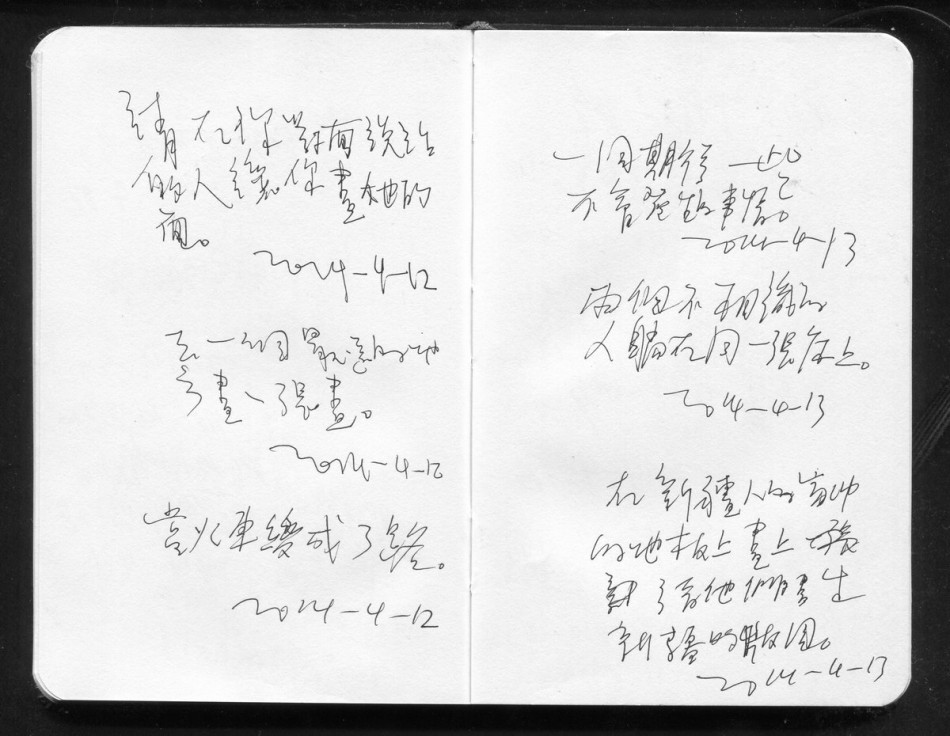 請在你對面說話
的人讓你畫他的
面。
2014-4-12
去一個最遠的地
方畫一張畫。
2014-4-12
當火車變成了路。
2014-4-12
一個期待一些
不會發生的事情。
2014-4-13
兩個不相識的
人躺在同一張床上。
2014-4-13
在新疆人的
的地板上畫上一張
他們
新疆的地圖。
2014-4-13